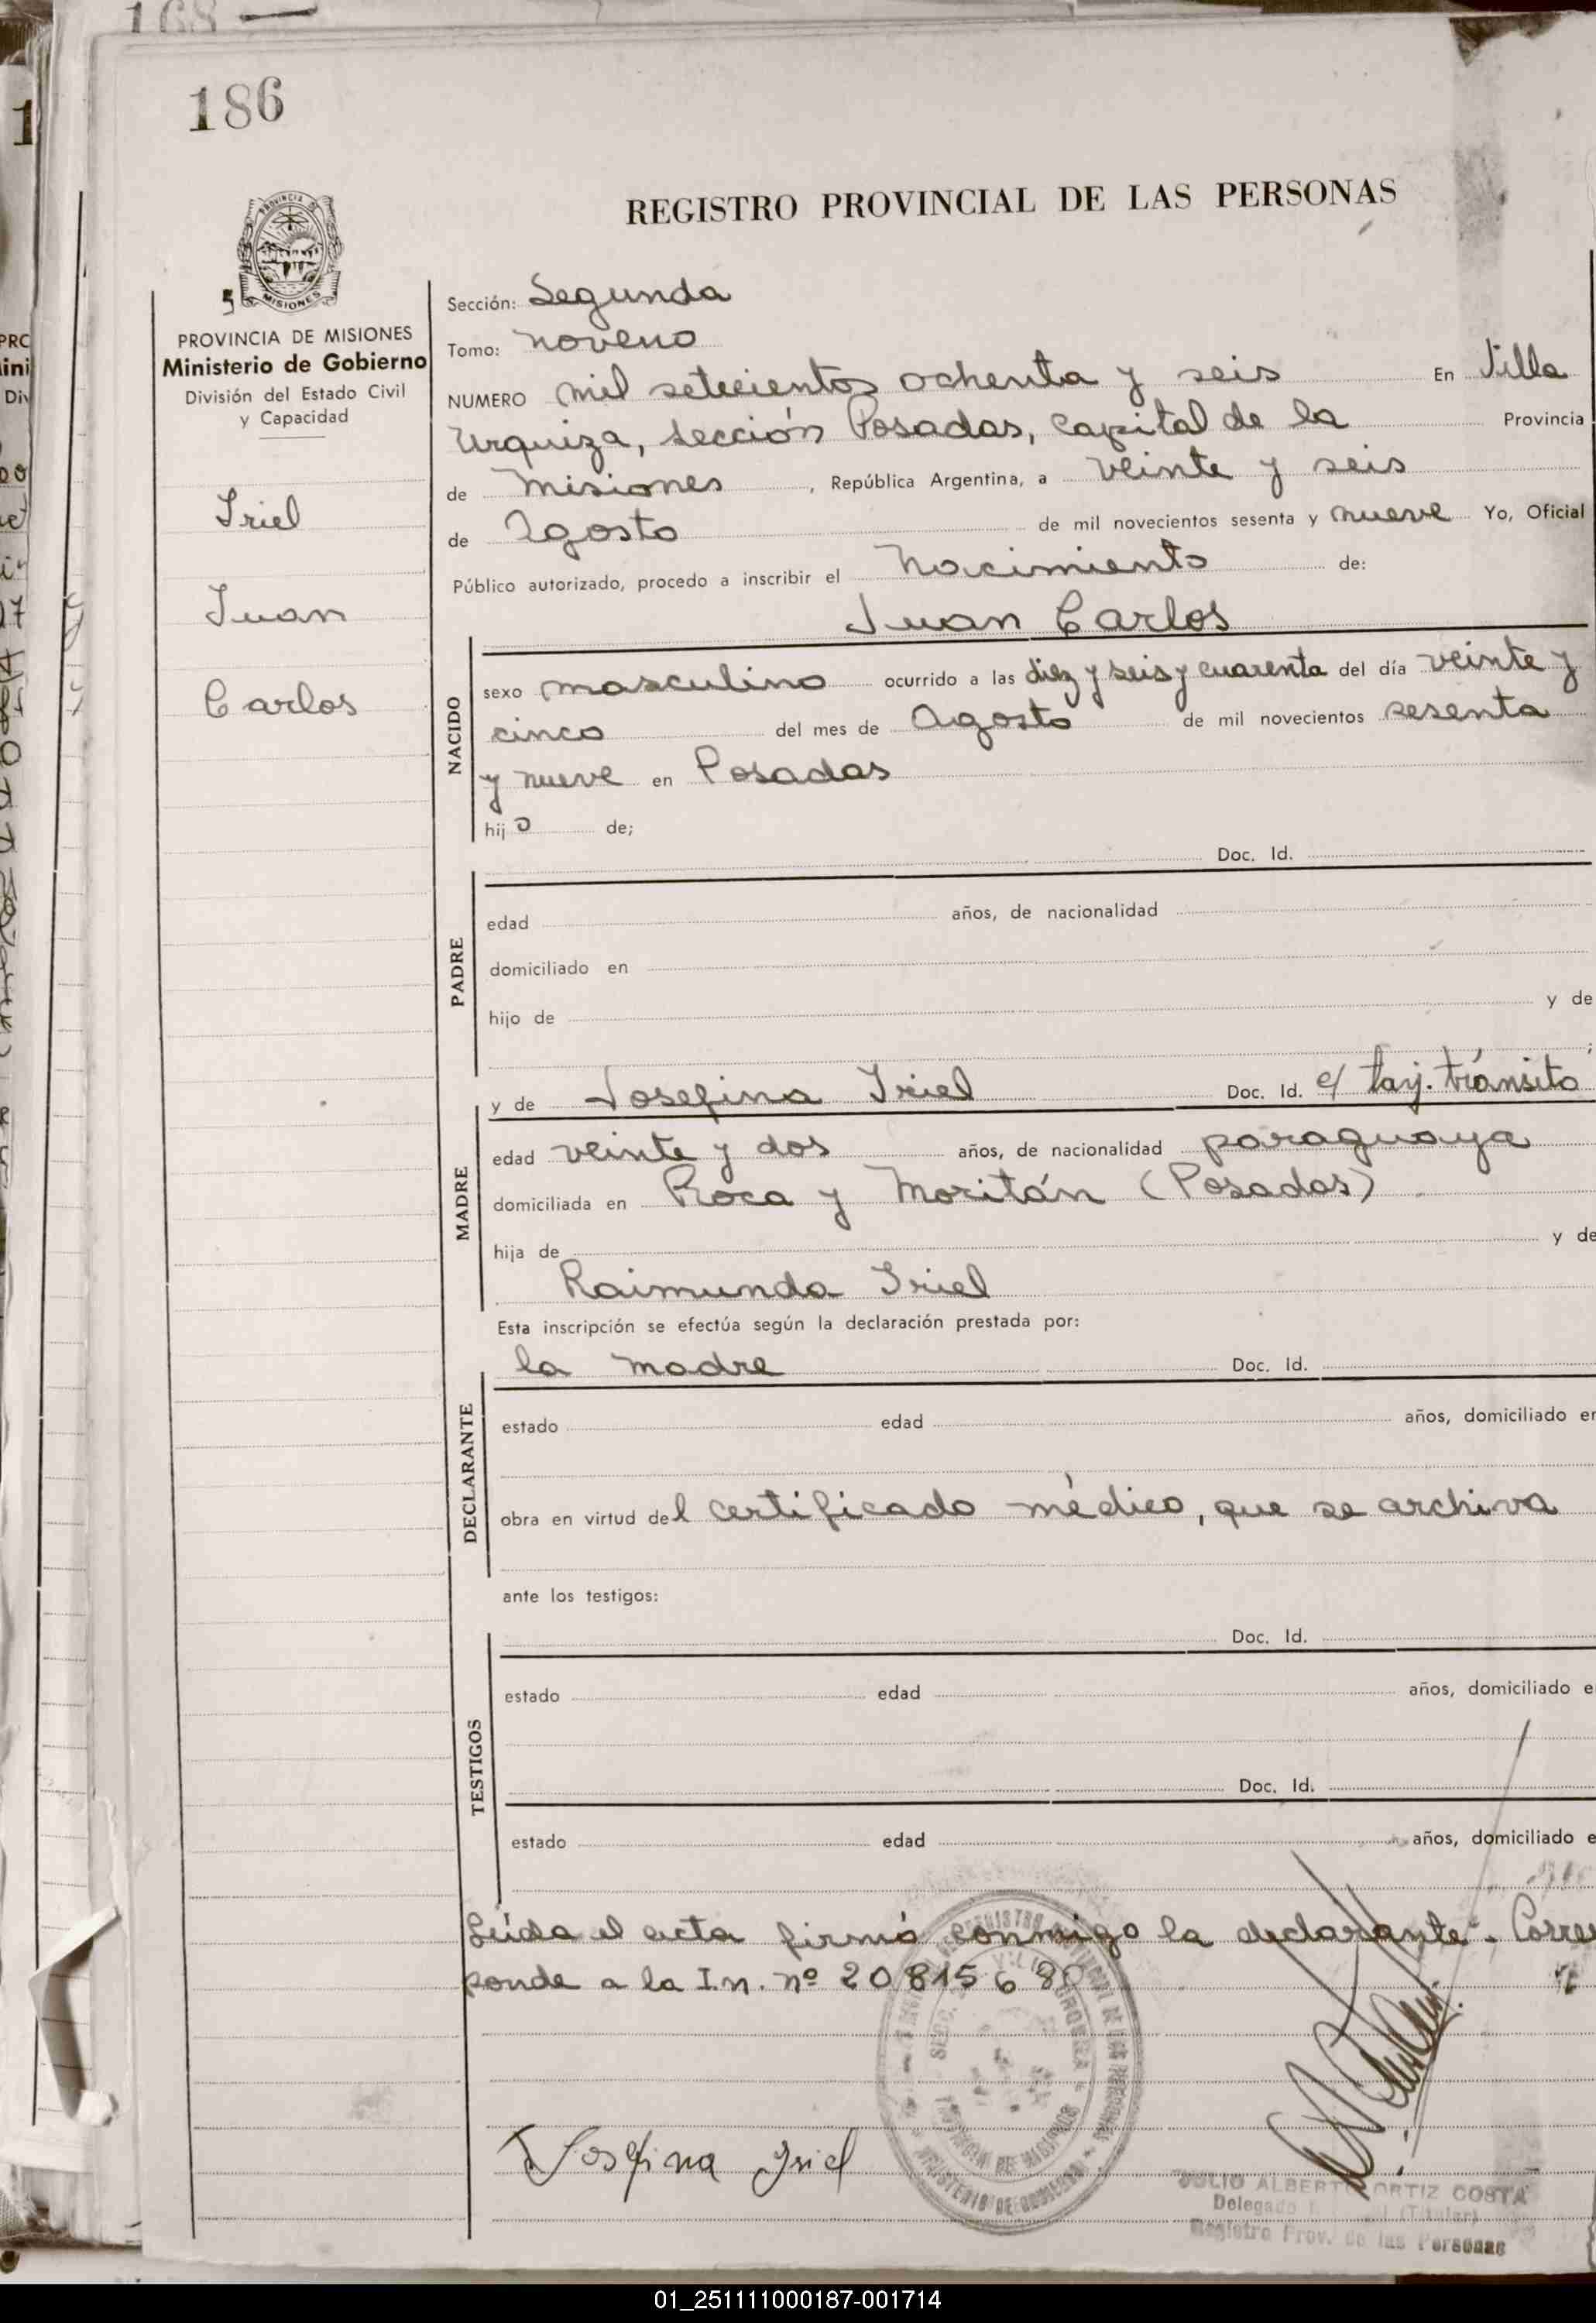 168
186
REGISTRO PROVINCIAL DE LAS PERSONAS
PROVINCIA DE MISIONES
Ministerio de Gobierno
División del Estado Civil
y Capacidad
Iriel
Juan
Carlos
Sección: Segunda
Tomo: noveno
NUMERO mil setecientos ochenta y seis En Villa
Urquiza, sección Posadas, capital de la Provincia
de Misiones, República Argentina, a veinte y seis
de Agosto de mil novecientos sesenta y nueve Yo, Oficial
Público autorizado, procedo a inscribir el Nacimiento de:
Juan Carlos
NACIDO
sexo masculino ocurrido a las diez y seis y cuarenta del día veinte y
cinco del mes de Agosto de mil novecientos sesenta
y nueve en Posadas
hijo de;
Doc. Id.
PADRE
edad años, de nacionalidad
domiciliado en
hijo de y de
;
y de Josefina Iriel Doc. Id. c/ tarj. tránsito
MADRE
edad veinte y dos años, de nacionalidad paraguaya
domiciliada en Roca y Moritán (Posadas)
hija de y de
Raimunda Iriel
Esta inscripción se efectúa según la declaración prestada por:
la madre Doc. Id.
DECLARANTE
estado edad años, domiciliado en
obra en virtud del certificado médico, que se archiva
ante los testigos:
Doc. Id.
TESTIGOS
estado edad años, domiciliado e
Doc. Id.
estado edad años, domiciliado e
Leída el acta firmó conmigo la declarante. Corres
ponde a la I.n. nº 20815680
Josefina Iriel
JULIO ALBERTO ORTIZ COSTA
Delegado (Titular)
Registro Prov. de las Personas
01_251111000187-001714